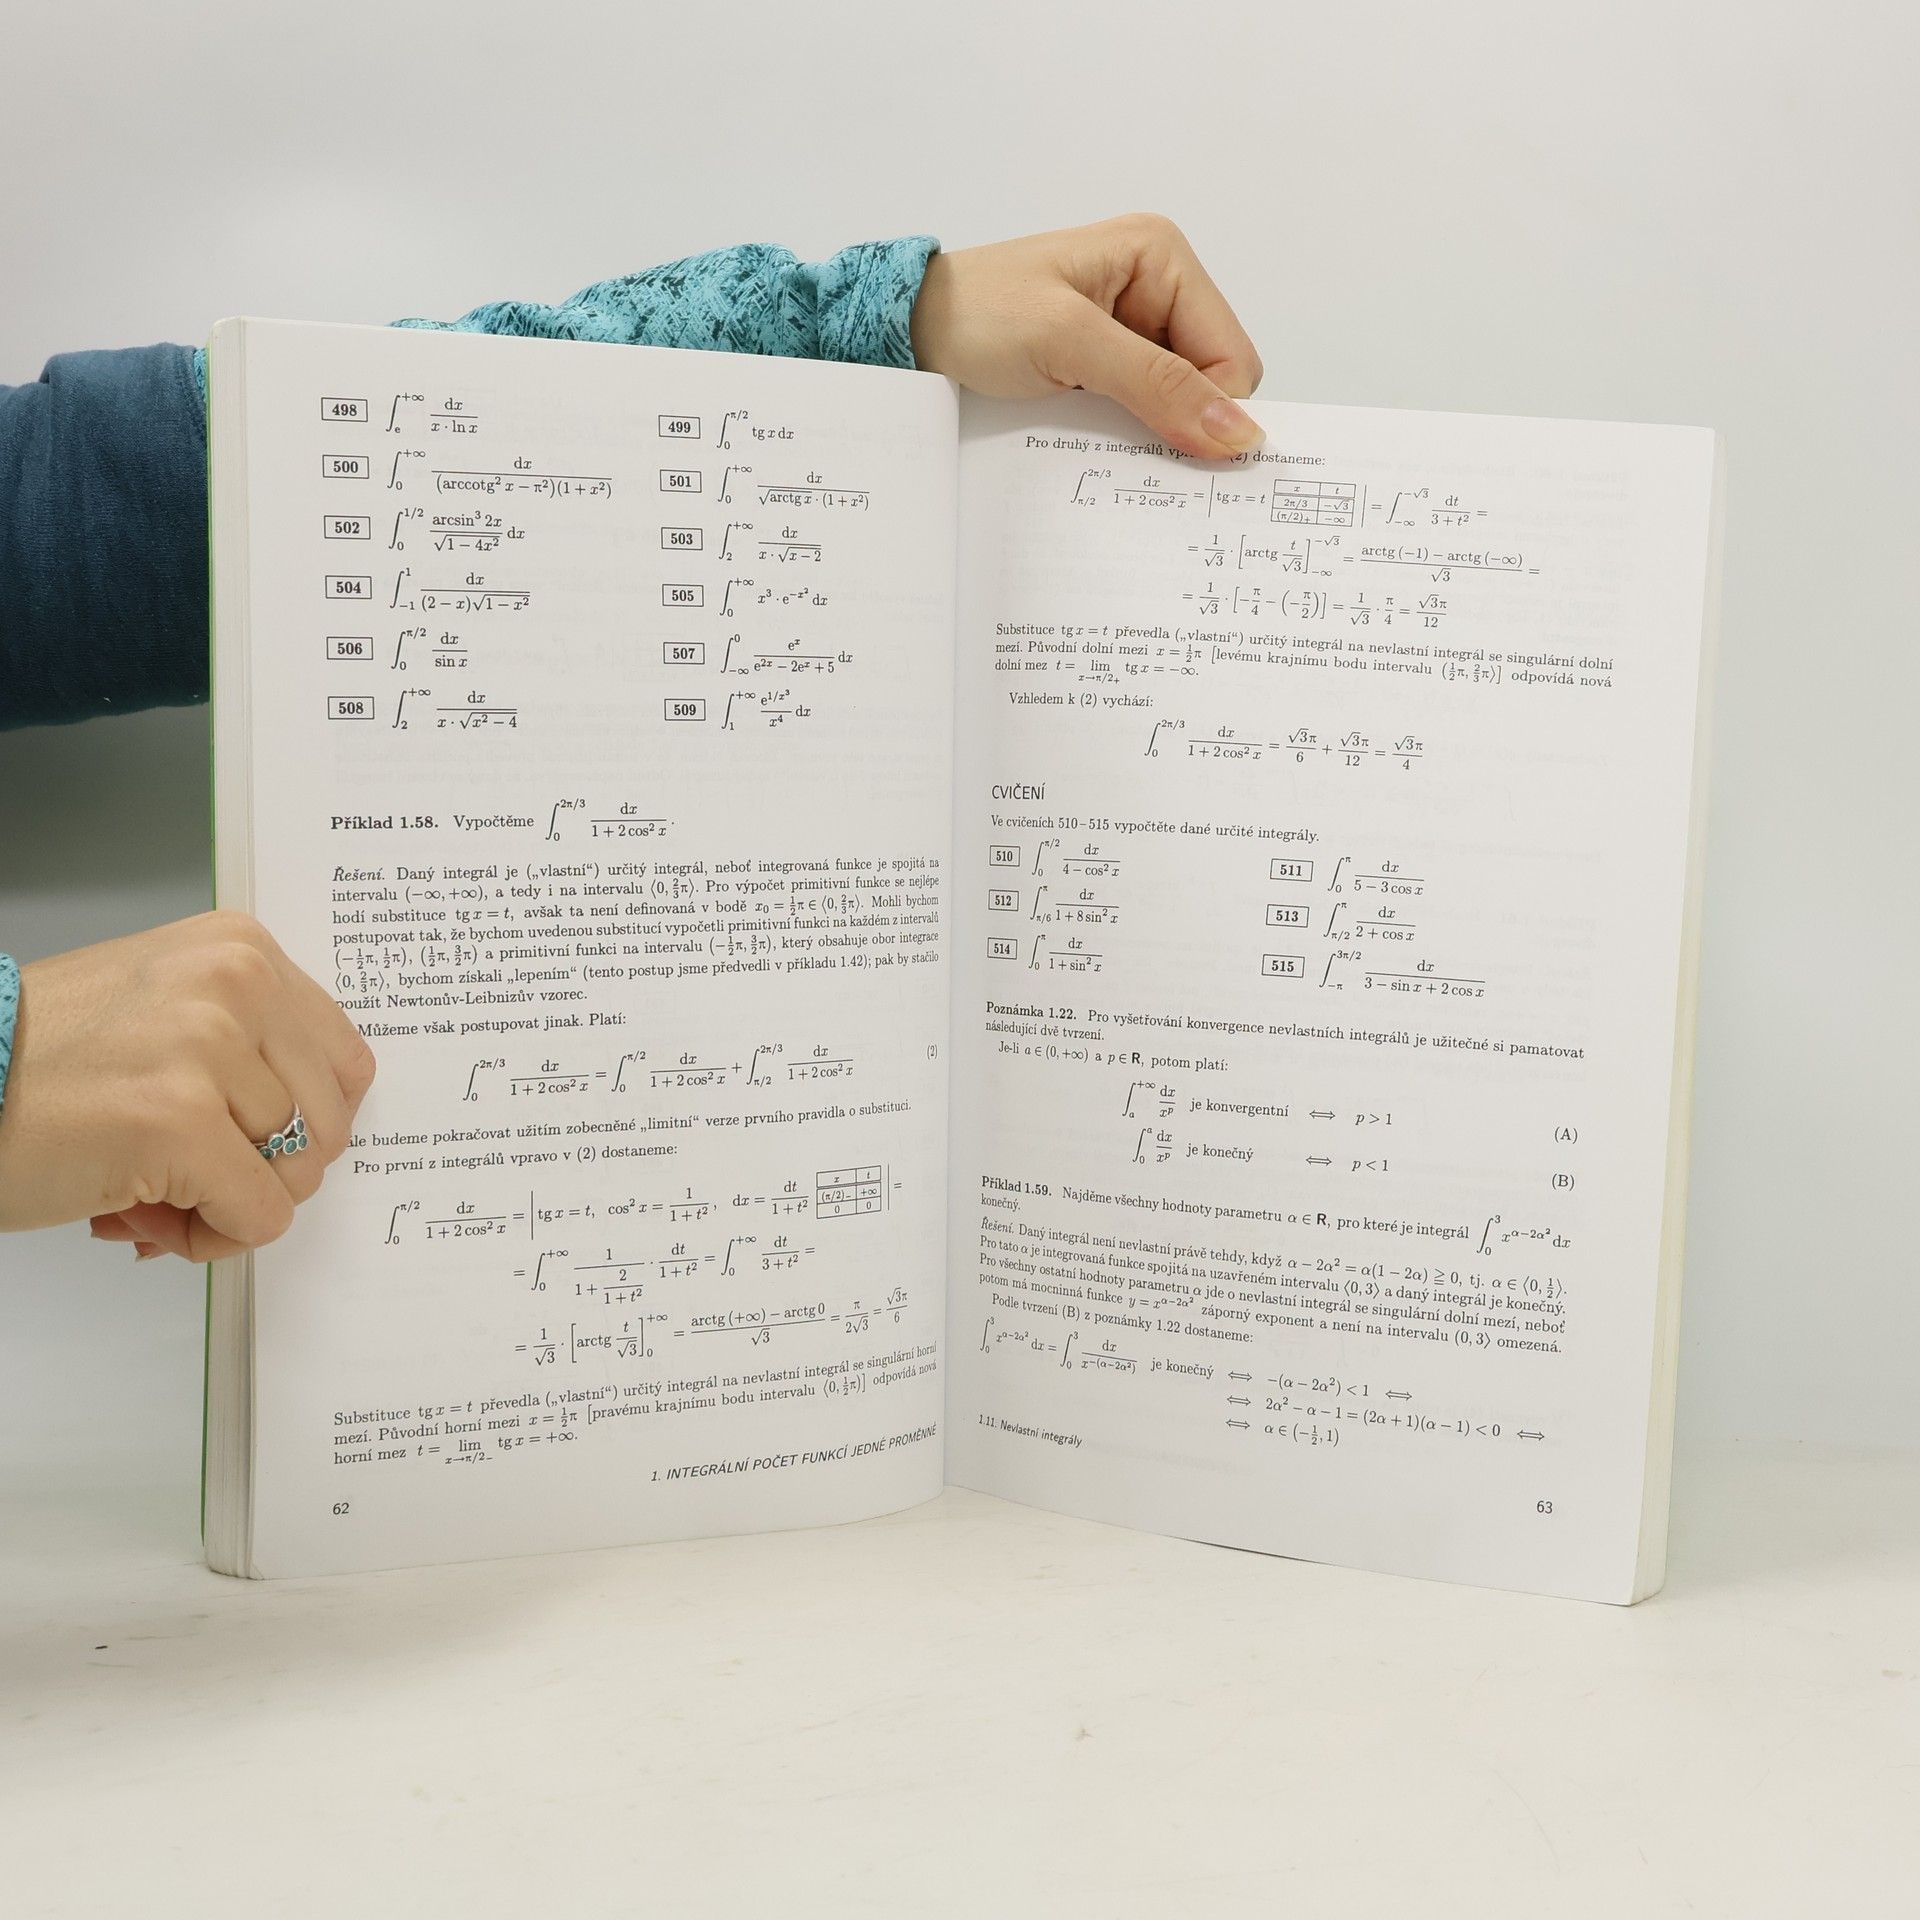 498 ∫_e^{+∞} dx/(x · ln x)
499 ∫_0^{π/2} tg x dx
500 ∫_0^{+∞} dx/((arccotg² x − π²)(1 + x²))
501 ∫_0^{+∞} dx/(√(arctg x) · (1 + x²))
502 ∫_0^{1/2} arcsin³ 2x/√(1 − 4x²) dx
503 ∫_2^{+∞} dx/(x · √(x − 2))
504 ∫_{−1}^1 dx/((2 − x)√(1 − x²))
505 ∫_0^{+∞} x³ · e^{−x²} dx
506 ∫_0^{π/2} dx/sin x
507 ∫_{−∞}^0 e^x/(e^{2x} − 2e^x + 5) dx
508 ∫_2^{+∞} dx/(x · √(x² − 4))
509 ∫_1^{+∞} e^{1/x³}/x⁴ dx
Příklad 1.58. Vypočtěme ∫_0^{2π/3} dx/(1 + 2 cos² x).
Řešení. Daný integrál je („vlastní“) určitý integrál, neboť integrovaná funkce je spojitá na
intervalu (−∞, +∞), a tedy i na intervalu ⟨0, 2/3π⟩. Pro výpočet primitivní funkce se nejlépe
hodí substituce tg x = t, avšak ta není definovaná v bodě x₀ = ½π ∈ ⟨0, 2/3π⟩. Mohli bychom
postupovat tak, že bychom uvedenou substitucí vypočetli primitivní funkci na každém z intervalů
(−½π, ½π), (½π, 3/2π) a primitivní funkci na intervalu (−½π, 3/2π), který obsahuje obor integrace
⟨0, 2/3π⟩, bychom získali „lepením“ (tento postup jsme předvedli v příkladu 1.42); pak by stačilo
použít Newtonův-Leibnizův vzorec.
Můžeme však postupovat jinak. Platí:
∫_0^{2π/3} dx/(1 + 2 cos² x) = ∫_0^{π/2} dx/(1 + 2 cos² x) + ∫_{π/2}^{2π/3} dx/(1 + 2 cos² x) (2)
ále budeme pokračovat užitím zobecněné „limitní“ verze prvního pravidla o substituci.
Pro první z integrálů vpravo v (2) dostaneme:
∫_0^{π/2} dx/(1 + 2 cos² x) = | tg x = t, cos² x = 1/(1 + t²), dx = dt/(1 + t²) x t (π/2)₋ +∞ 0 0 | =
= ∫_0^{+∞} 1/(1 + 2/(1 + t²)) · dt/(1 + t²) = ∫_0^{+∞} dt/(3 + t²) =
= 1/√3 · [arctg t/√3]_0^{+∞} = (arctg (+∞) − arctg 0)/√3 = π/(2√3) = √3π/6
Substituce tg x = t převedla („vlastní“) určitý integrál na nevlastní integrál se singulární horní
mezí. Původní horní mezi x = ½π [pravému krajnímu bodu intervalu ⟨0, ½π)] odpovídá nová
horní mez t = lim_{x→π/2₋} tg x = +∞.
1. INTEGRÁLNÍ POČET FUNKCÍ JEDNÉ PROMĚNNÉ
62
Pro druhý z integrálů (2) dostaneme:
∫_{π/2}^{2π/3} dx/(1 + 2 cos² x) = | tg x = t x t 2π/3 −√3 (π/2)₊ −∞ | = ∫_{−∞}^{−√3} dt/(3 + t²) =
= 1/√3 · [arctg t/√3]_{−∞}^{−√3} = (arctg (−1) − arctg (−∞))/√3 =
= 1/√3 · [−π/4 − (−π/2)] = 1/√3 · π/4 = √3π/12
Substituce tg x = t převedla („vlastní“) určitý integrál na nevlastní integrál se singulární dolní
mezí. Původní dolní mezi x = ½π [levému krajnímu bodu intervalu (½π, 2/3π⟩] odpovídá nová
dolní mez t = lim_{x→π/2₊} tg x = −∞.
Vzhledem k (2) vychází:
∫_0^{2π/3} dx/(1 + 2 cos² x) = √3π/6 + √3π/12 = √3π/4
CVIČENÍ
Ve cvičeních 510–515 vypočtěte dané určité integrály.
510 ∫_0^{π/2} dx/(4 − cos² x)
511 ∫_0^π dx/(5 − 3 cos x)
512 ∫_{π/6}^π dx/(1 + 8 sin² x)
513 ∫_{π/2}^π dx/(2 + cos x)
514 ∫_0^π dx/(1 + sin² x)
515 ∫_{−π}^{3π/2} dx/(3 − sin x + 2 cos x)
Poznámka 1.22. Pro vyšetřování konvergence nevlastních integrálů je užitečné si pamatovat
následující dvě tvrzení.
Je-li a ∈ (0, +∞) a p ∈ R, potom platí:
∫_a^{+∞} dx/x^p je konvergentní ⟺ p > 1 (A)
∫_0^a dx/x^p je konečný ⟺ p < 1 (B)
Příklad 1.59. Najděme všechny hodnoty parametru α ∈ R, pro které je integrál ∫_0^3 x^{α−2α²} dx
konečný.
Řešení. Daný integrál není nevlastní právě tehdy, když α − 2α² = α(1 − 2α) ≧ 0, tj. α ∈ ⟨0, ½⟩.
Pro tato α je integrovaná funkce spojitá na uzavřeném intervalu ⟨0, 3⟩ a daný integrál je konečný.
Pro všechny ostatní hodnoty parametru α jde o nevlastní integrál se singulární dolní mezí, neboť
potom má mocninná funkce y = x^{α−2α²} záporný exponent a není na intervalu (0, 3⟩ omezená.
Podle tvrzení (B) z poznámky 1.22 dostaneme:
∫_0^3 x^{α−2α²} dx = ∫_0^3 dx/x^{−(α−2α²)} je konečný ⟺ −(α − 2α²) < 1 ⟺
⟺ 2α² − α − 1 = (2α + 1)(α − 1) < 0 ⟺
⟺ α ∈ (−½, 1)
1.11. Nevlastní integrály
63